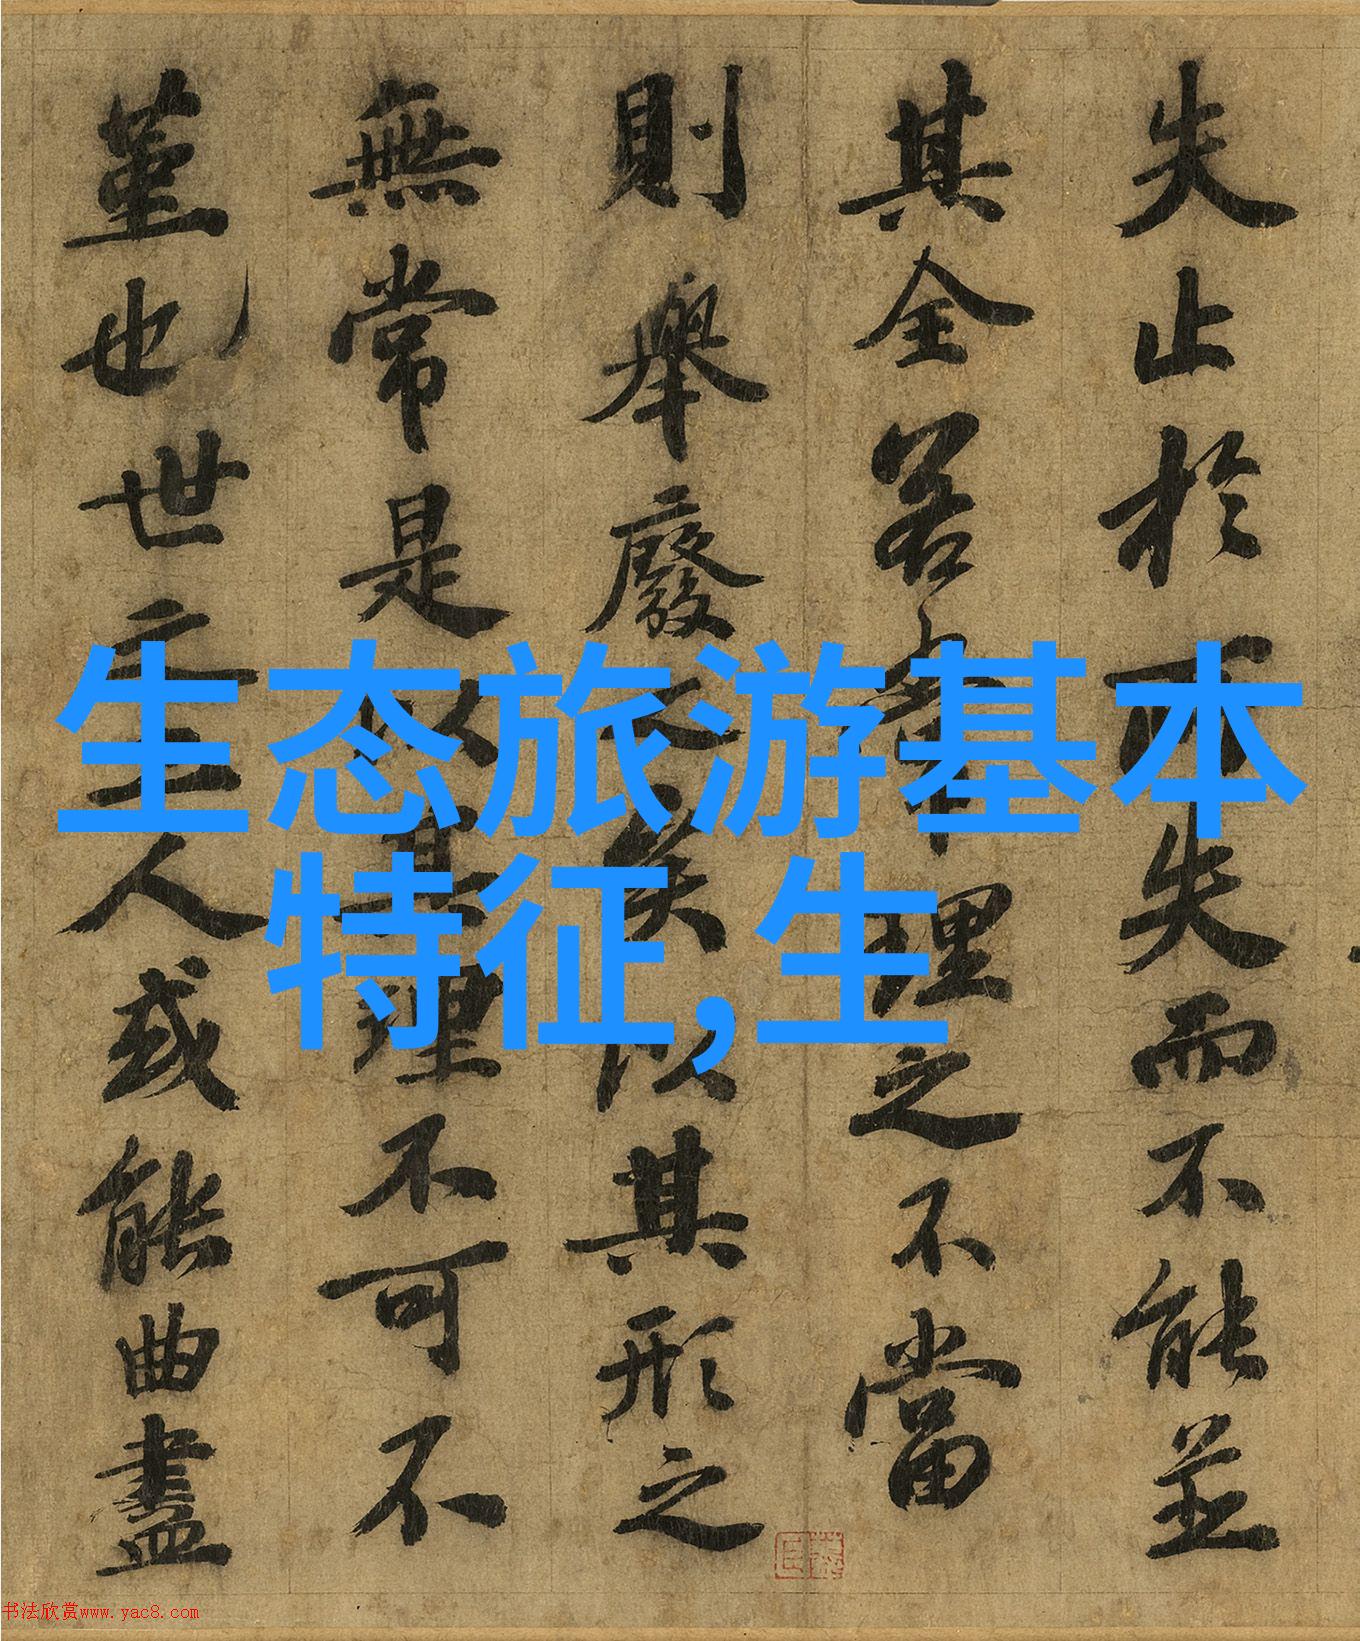 失止於所失而不能並
其全若常理之不當
則舉廢之矣以其形之
無常是以其理不可不
堇也世之工人或能曲盡
生态旅游基本
特征,生
书法欣赏www.yac8.com